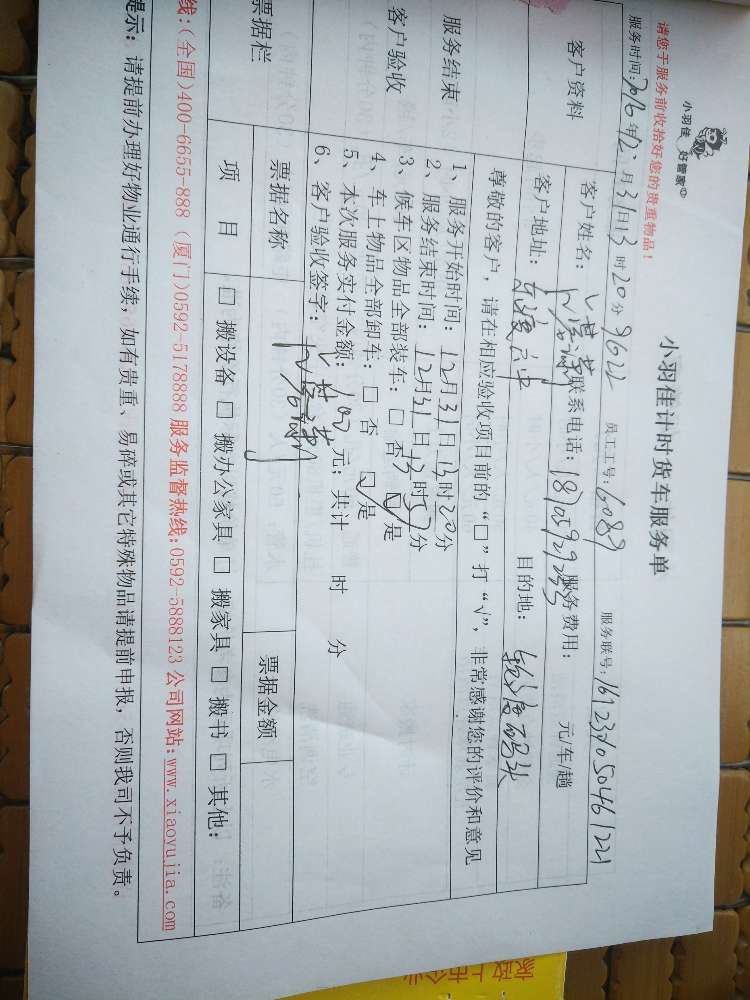 请您于服务前收拾好您的贵重物品!
小羽佳 好管家
小羽佳计时货车服务单
服务时间:2016年12月31日13时20分 9622 员工工号:6089 服务联号:
客户资料
客户姓名: 联系电话: 服务费用: 元/车/趟
客户地址: 东渡 目的地: 码头
尊敬的客户,请在相应验收项目前的“□”打“√”,非常感谢您的评价和意见
服务结束
客户验收
1、服务开始时间:12月31日13时20分
2、服务结束时间:12月31日13时 分
3、候车区物品全部装车:□ 否 ☑是
4、车上物品全部卸车:□ 否 ☑是
5、本次服务实付金额: 元;共计 时 分
6、客户验收签字:
票据栏
票据名称 票据金额
项 目 □ 搬设备 □ 搬办公家具 □ 搬家具 □ 搬书 □ 其他:
线:(全国)400-6655-888 (厦门)0592-5178888 服务监督热线:0592-5888123 公司网站:www.xiaoyujia.com
提示: 请提前办理好物业通行手续,如有贵重、易碎或其它特殊物品请提前申报,否则我司不予负责。
家政上市企业